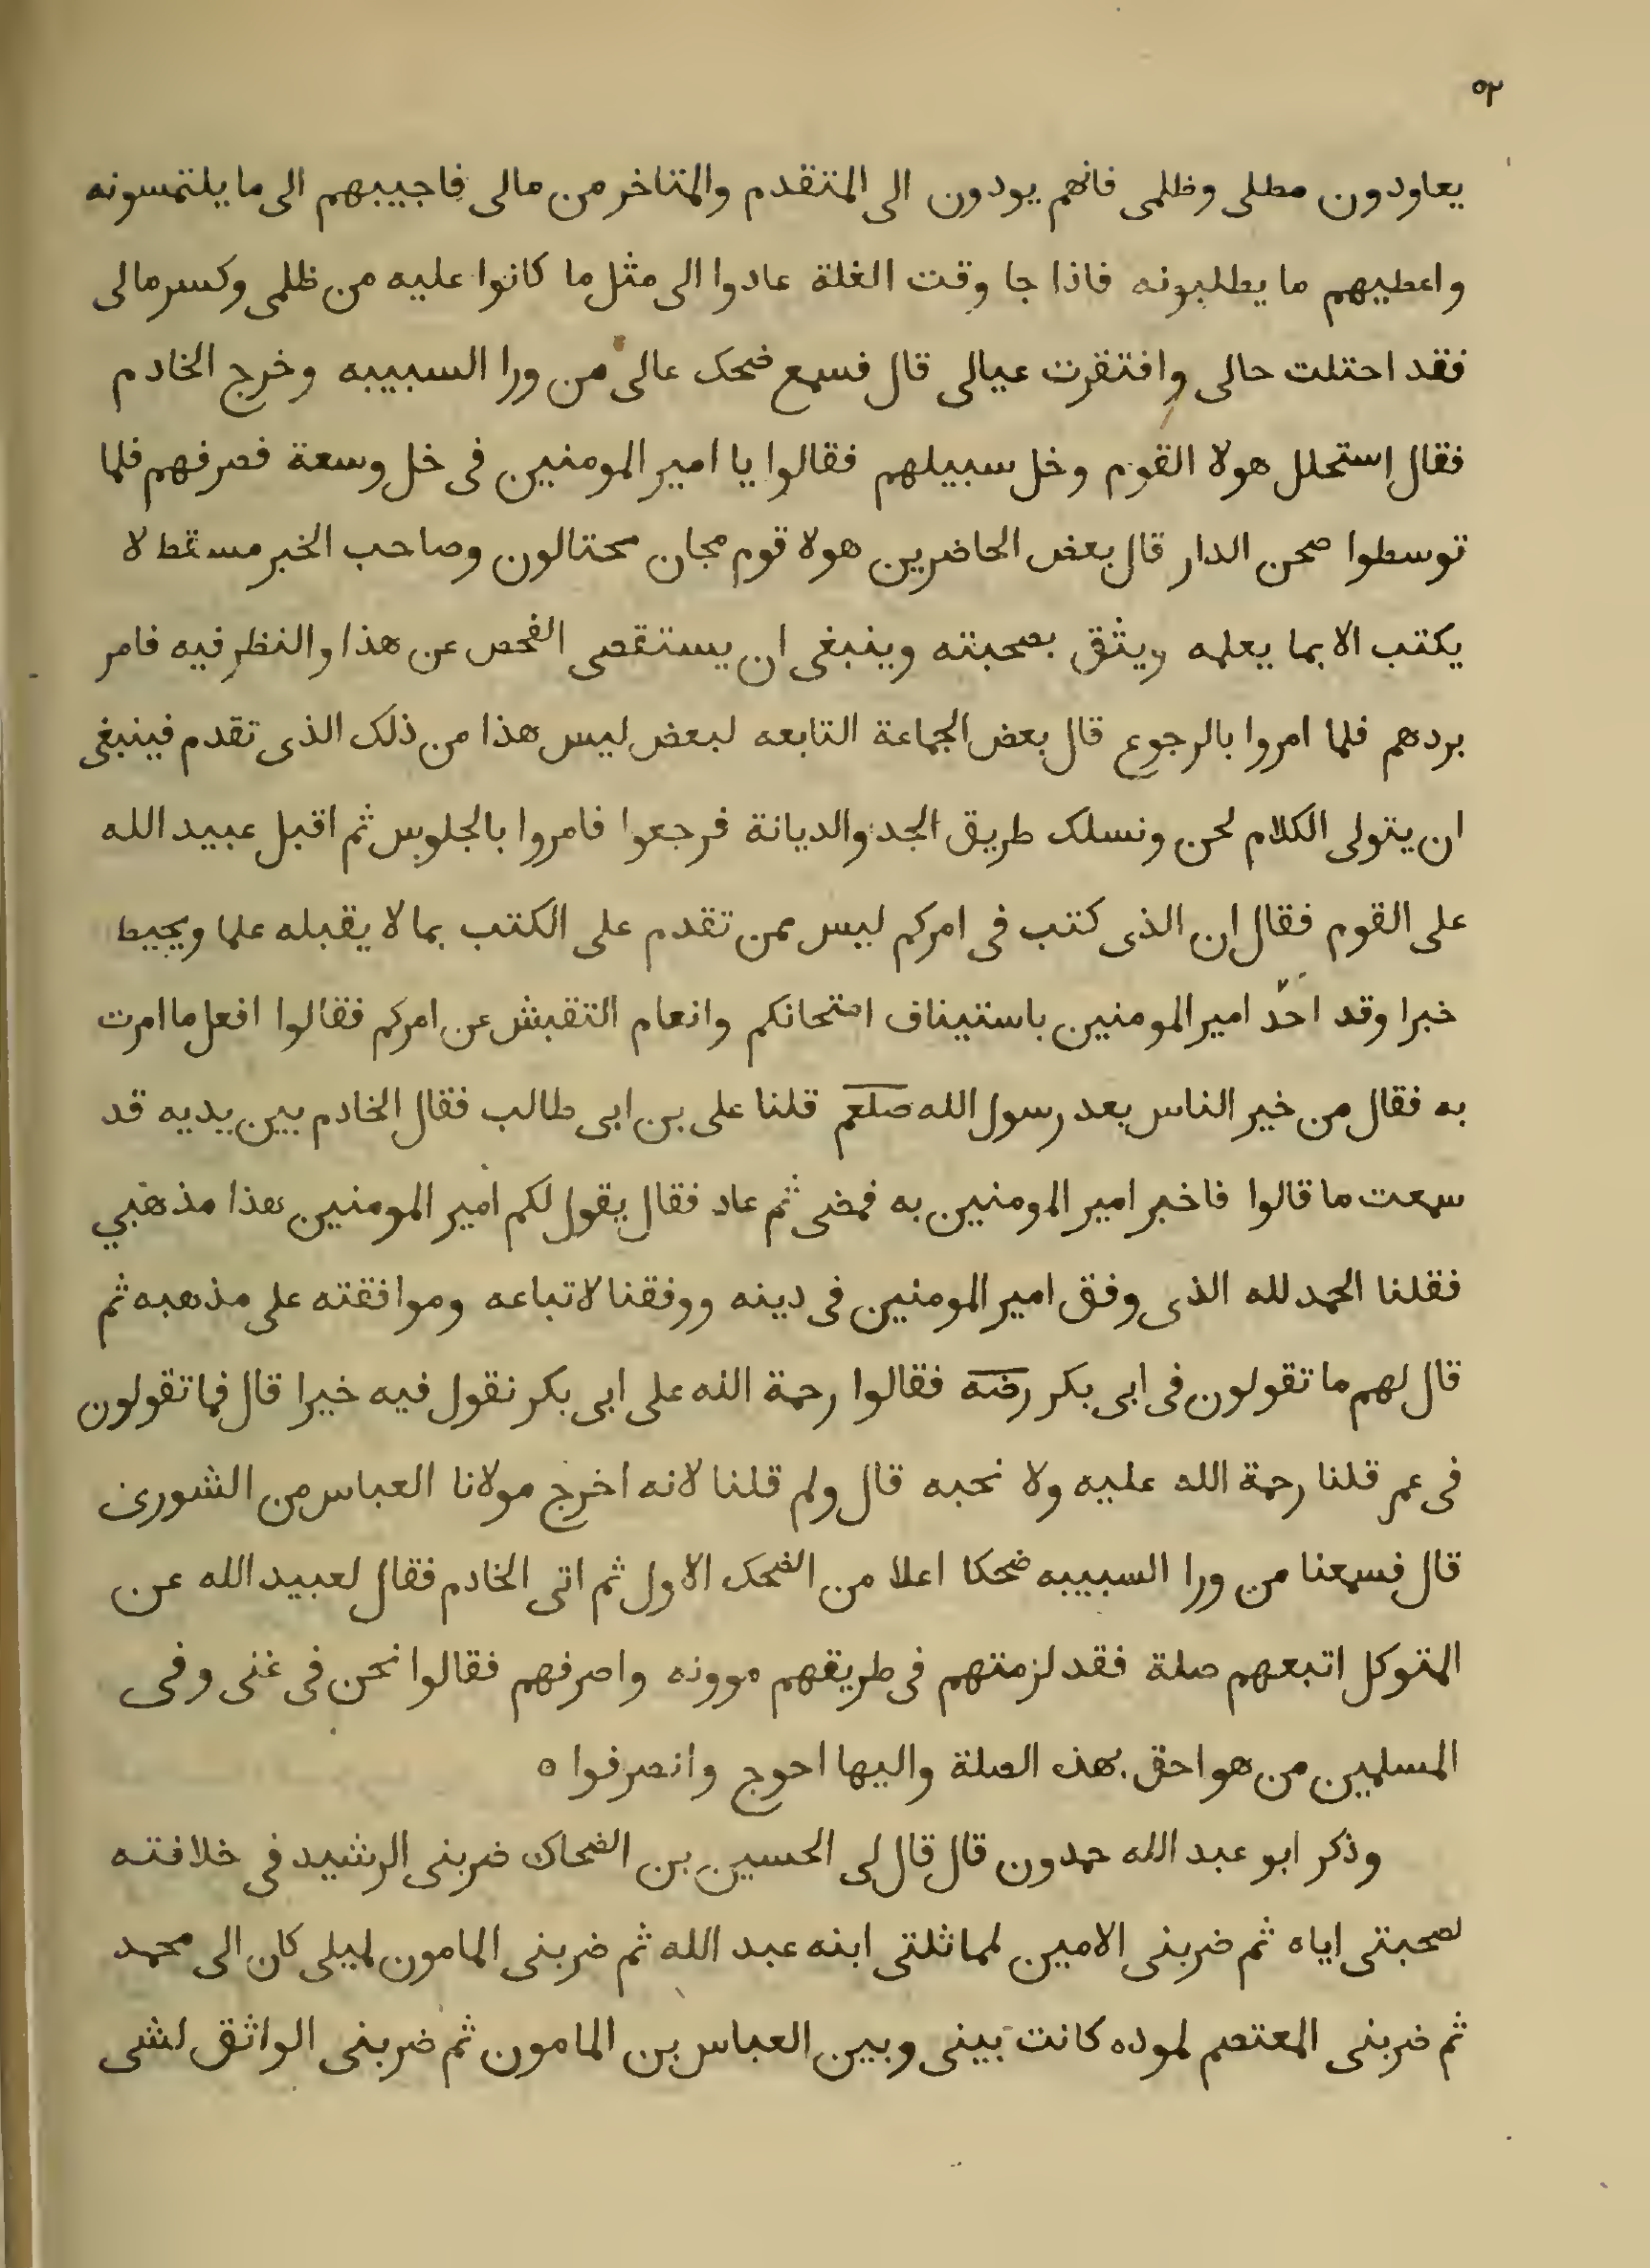 ٥٢
يعاودون مطلى وظلمى فانهم يودون الى المتقدم والمتاخر من مالى فاجيبهم الى ما يلتمسونه
واعطيهم ما يطلبونه فاذا جا وقت الغلة عادوا الى مثل ما كانوا عليه من ظلمى وكسر مالى
فقد احتلت حالى وافتقرت عيالى قال فسمع ضحك عالى من ورا السبيبه وخرج الخادم
فقال استحلل هولا القوم وخل سبيلهم فقالوا يا امير المومنين فى خل وسعة فصرفهم فلما
توسطوا صحن الدار قال بعض الحاضرين هولا قوم مجان محتالون وصاحب الخبر مسقط لا
يكتب الا بما يعلمه ويثق بصحبته وينبغى ان يستقصى الفحص عن هذا والنظر فيه فامر
بردهم فلما امروا بالرجوع قال بعض الجماعة التابعه لبعض ليس هذا من ذلك الذى تقدم فينبغى
ان يتولى الكلام نحن ونسلك طريق الجد والديانة فرجعوا فامروا بالجلوس ثم اقبل عبيد الله
على القوم فقال ان الذى كتب فى امركم ليس ممن تقدم على الكتب بما لا يقبله علما ويحيط
خبرا وقد احد امير المومنين باستيناف امتحانكم وانعام التقبش عن امركم فقالوا افعل ما امرت
به فقال من خير الناس بعد رسول الله صلعم قلنا على بن ابى طالب فقال الخادم بين يديه قد
سمعت ما قالوا فاخبر امير المومنين به فمضى ثم عاد فقال يقول لكم امير المومنين هذا مذهبي
فقلنا الحمد لله الذى وفق امير المومنين فى دينه ووفقنا لاتباعه وموافقته على مذهبه ثم
قال لهم ما تقولون فى ابى بكر رضه فقالوا رحمة الله على ابى بكر نقول فيه خيرا قال فما تقولون
فى عمر قلنا رحمة الله عليه ولا نحبه قال ولم قلنا لانه اخرج مولانا العباس من الشورى
قال فسمعنا من ورا السبيبه ضحكا اعلا من الضحك الاول ثم اتى الخادم فقال لعبيد الله عن
المتوكل اتبعهم صلة فقد لزمتهم فى طريقهم موونه واصرفهم فقالوا نحن فى غنى وفى
المسلمين من هو احق بهذه الصلة واليها احوج وانصرفوا ٥
وذكر ابو عبد الله حمدون قال قال لى الحسين بن الضحاك ضربنى الرشيد فى خلافته
لصحبتى اياه ثم ضربنى الامين لمماثلتى ابنه عبد الله ثم ضربنى المامون لميلى كان الى محمد
ثم ضربنى المعتصم لموده كانت بينى وبين العباس بن المامون ثم ضربنى الواثق لشى